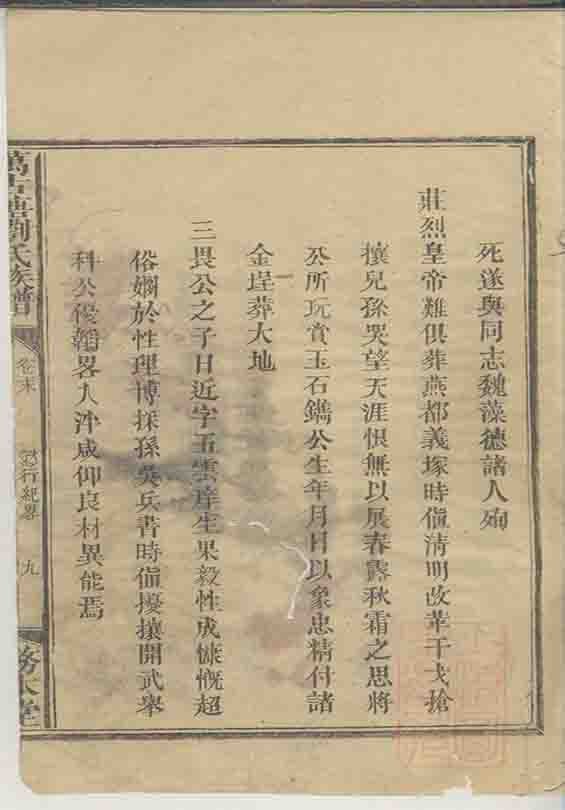 死遂與同志魏藻德諸人殉
莊烈皇帝難俱葬燕都義塚時値清明改革干戈搶
攘兒孫哭望天涯恨無以展春露秋霜之思將
公所玩賞玉石鐫公生年月日以象忠精付諸
金埕葬大地
三畏公之子日近字五雲庠生果毅性成慷慨超
俗嫻於性理博採孫吳兵書時値擾攘開武舉
科公優韜畧人泮咸仰良材異能焉
劉氏族譜
卷末
行紀畧
九
務本堂